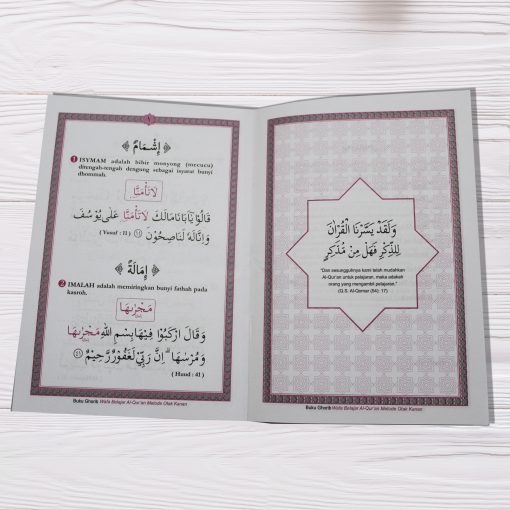 ١
إِشْمَامٌ
1 ISYMAM adalah bibir monyong (mecucu)
ditengah-tengah dengung sebagai isyarat bunyi
dhommah.
لَاتَأْمَنَّا
قَالُوْا يٰٓاَبَانَا مَالَكَ لَاتَأْمَنَّا عَلٰى يُوْسُفَ
وَاِنَّالَهٗ لَنَاصِحُوْنَ ﴿١١﴾ (Yusuf : 11)
إِمَالَةٌ
2 IMALAH adalah memiringkan bunyi fathah pada
kasroh.
مَجْرٰىهَا
وَقَالَ ارْكَبُوْا فِيْهَا بِسْمِ اللّٰهِ مَجْرٰىهَا
وَمُرْسٰىهَا ۗ اِنَّ رَبِّيْ لَغَفُوْرٌ رَّحِيْمٌ ﴿٤١﴾
(Huud : 41)
Buku Ghorib Wafa Belajar Al-Qur'an Metode Otak Kanan
وَلَقَدْ يَسَّرْنَا الْقُرْاٰنَ
لِلذِّكْرِ فَهَلْ مِنْ مُّدَّكِرٍ
"Dan sesungguhnya kami telah mudahkan
Al-Qur'an untuk pelajaran, maka adakah
orang yang mengambil pelajaran."
(Q.S. Al-Qomar (54): 17)
Buku Ghorib Wafa Belajar Al-Qur'an Metode Otak Kanan